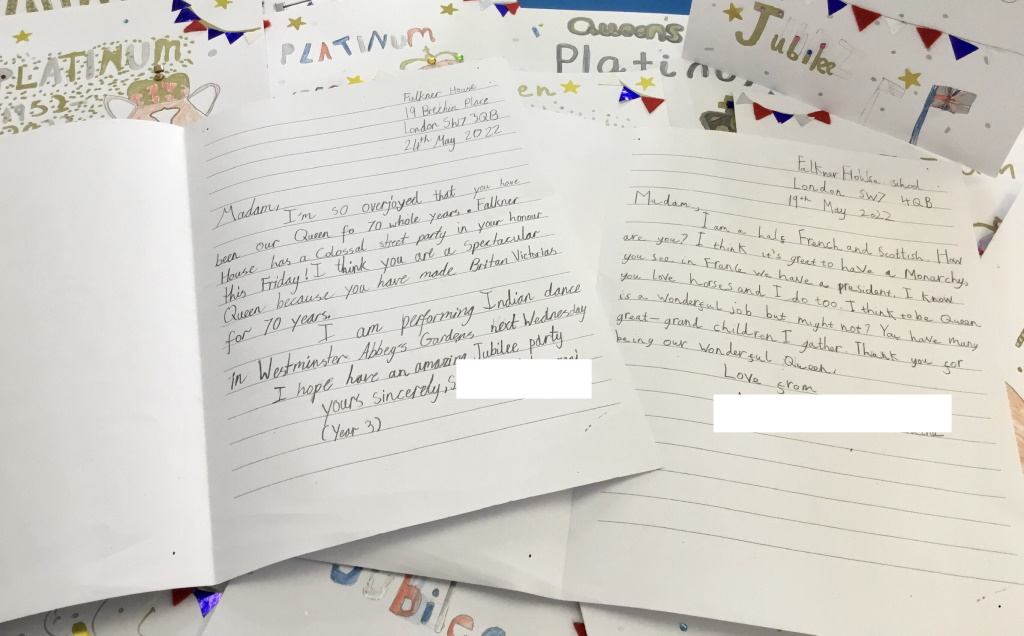 PLATINUM
1952-
PLATINUM
Queen's
Platinu
Jubilee
en
Falkner House
19 Brechin Place
London SW7 3QB
24th May 2022
Madam,
I'm so overjoyed that you have
been our Queen fo 70 whole years. Falkner
House has a Colossal street party in your honour
this Friday! I think you are a Spectacular
Queen because you have made Britan Victorias
for 70 years.
I am performing Indian dance
in Westminster Abbey's Gardens next Wednesday
I hope have an amazing Jubilee party
yours sincerely, S
(Year 3)
Falkner House school
London SW7 4QB
19th May 2022
Madam,
I am a hals French and Scottish. How
are you? I think it's great to have a Monarchy,
you see in France we have a president. I know
you love horses and I do too. I think to be Queen
is a wonderful job but might not? You have many
great-grand children I gather Thank you for
being our wonderful Queen.
Love from
Jubilee